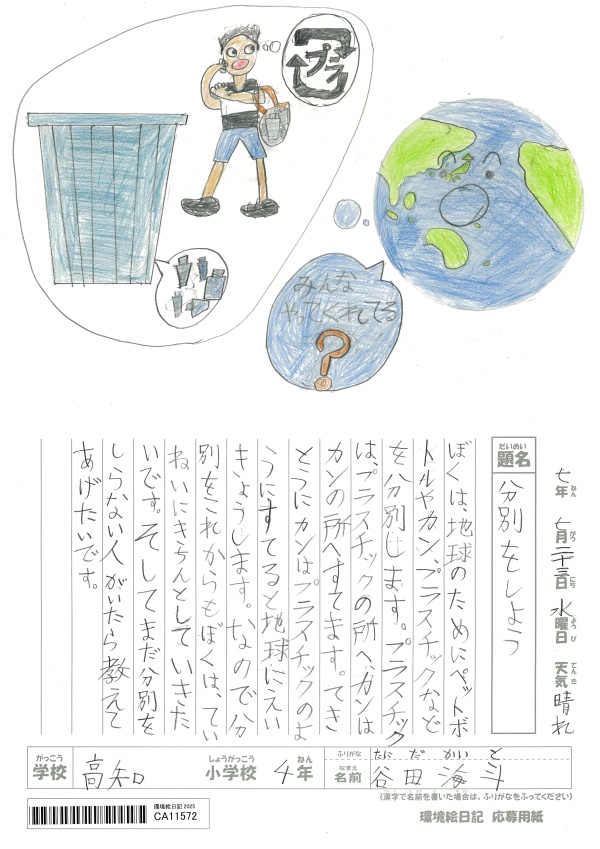 プラ
みんな
やってくれてる
?
七年 七月二十三日 水曜日 天気 晴れ
ねん がつ にち ようび てんき
だいめい
題名 分別をしよう
ぼくは、地球のためにペットボ
トルやカン、プラスチックなど
を分別します。プラスチック
は、プラスチックの所へ、カンは
カンの所へすてます。てき
とうにカンはプラスチックのよ
うにすてると地球にえい
きょうします。なので分
別をこれからもぼくは、てい
ねいにきちんとしていきた
いです。そしてまだ分別を
しらない人がいたら教えて
あげたいです。
がっこう しょうがっこう ねん ふりがな たに だ かい と
学校 高知 小学校 4年 なまえ 名前 谷田 海斗
(漢字で名前を書いた場合は、ふりがなをふってください)
環境絵日記 2025
CA11572
環境絵日記 応募用紙